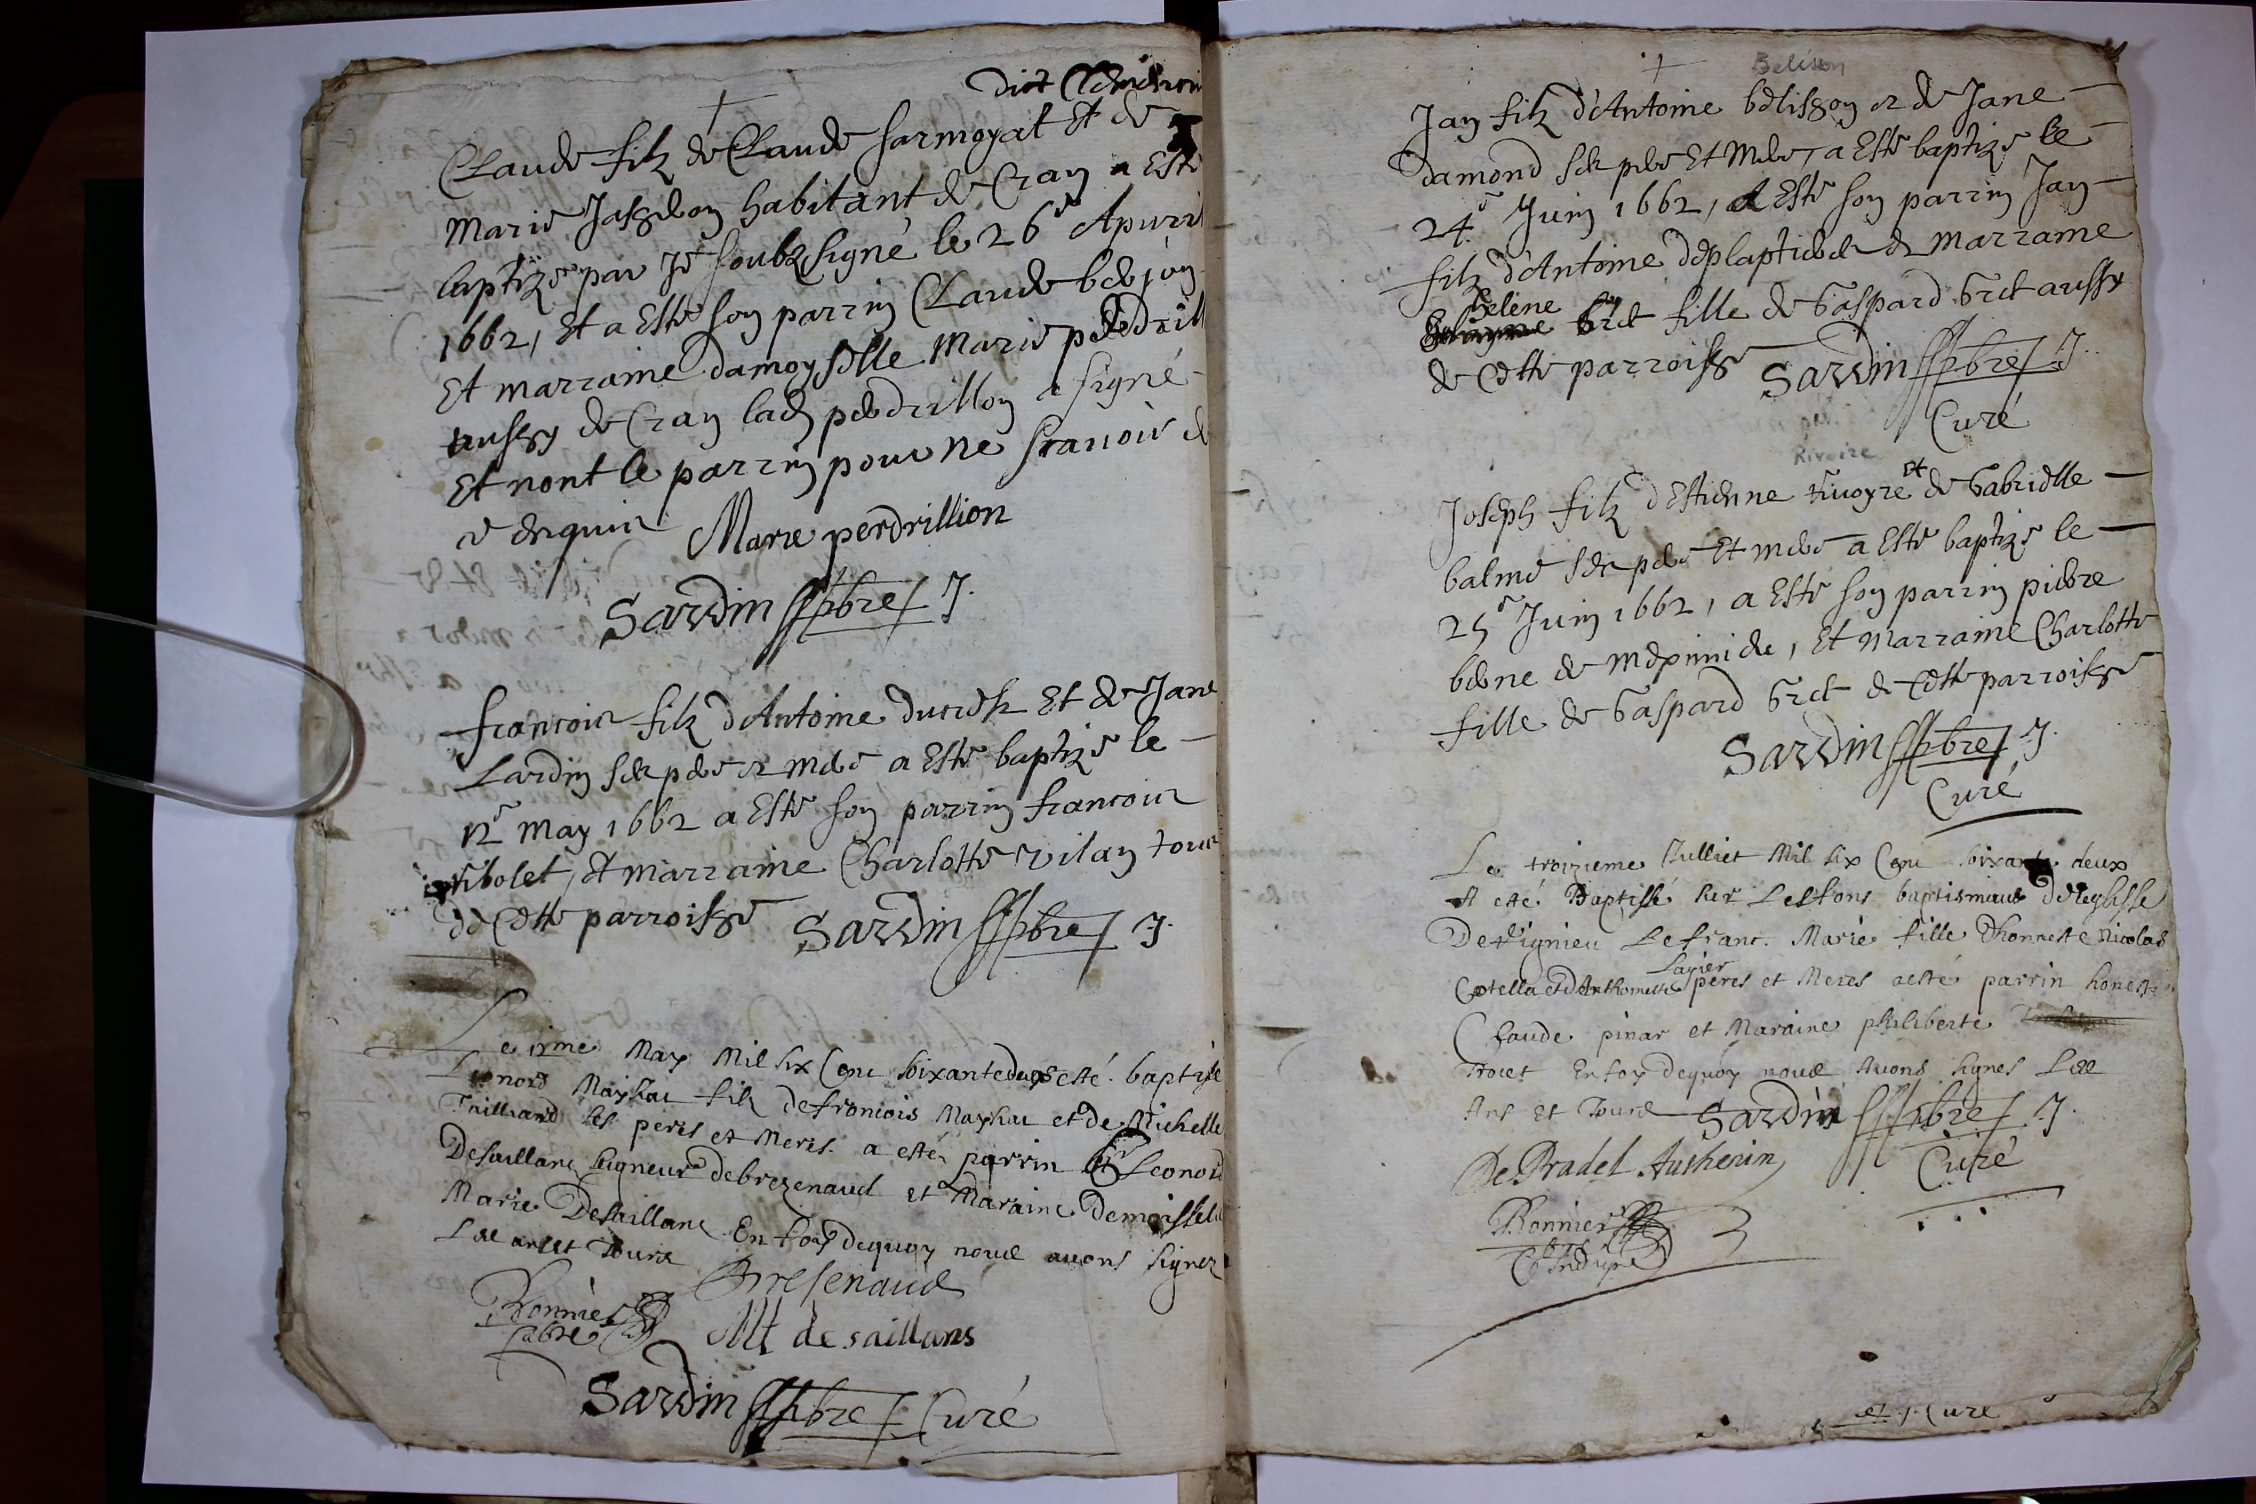 dict
Claude filz de Claude sarmoyat Et de
Marie habitant de Cran a Esté
baptize par Je soubzsigné le 26e Apvril
1662, Et a Esté son parrin Claude
Et marraine damoyselle Marie
aussy de Cran lad perdrillon a signé
Et nont le parrin pour ne scavoir de
ce enquis Marie perdrillion
Sardin pbre J.
francois filz dAntoine Et de Jane
Lardin ses pere et mere a Esté baptize le
12e May 1662 a Esté son parrin francois
ribolet, et marraine Charlotte vilan tous
de Cette parroisse Sardin pbre J.
Le May Mil six Cenc soixante deux esté baptise
Leonord filz de francois et de Michelle
ses peres et Meres. a esté parrin Leonord
Desaillanc seigneur debrezenaud et Maraine Demoisselle
Marie Desaillanc En foy dequoy nous avons signez
Les an et Jours Bresenaud
Ronnier
M de saillans
Sardin pbre Curé
Belison
Jan filz dAntoine belisson et de Jane
damond ses pere Et Mere, a Esté baptize le
24e Juin 1662, a Esté son parrin Jan
filz dAntoine et marraine
helene fille de Gaspard aussy
de Cette parroisse Sardin pbre J.
Curé
Rivoire
Joseph filz dEstienne rivoyre et de Gabrielle
balme ses pere Et mere a Esté baptize le
25e Juin 1662, a Esté son parrin pierre
berne de meximieu, Et marraine Charlotte
fille de Gaspard de Cette parroisse
Sardin pbre J.
Curé
Le troizieme Julliet Mil six Cenc soixante deux
A etté Baptissé sur Les fons baptismaus de leglisse
De Le franc. Marie fille Dhonneste nicolas
Layier
Cotella et dAnthoinette peres et Meres aesté parrin honeste
Claude pinar et Maraine philiberte
En foy dequoy nous Avons signes Les
Ans et Jours Sardin pbre J.
De Pradel Curé
Ronnier
Curé